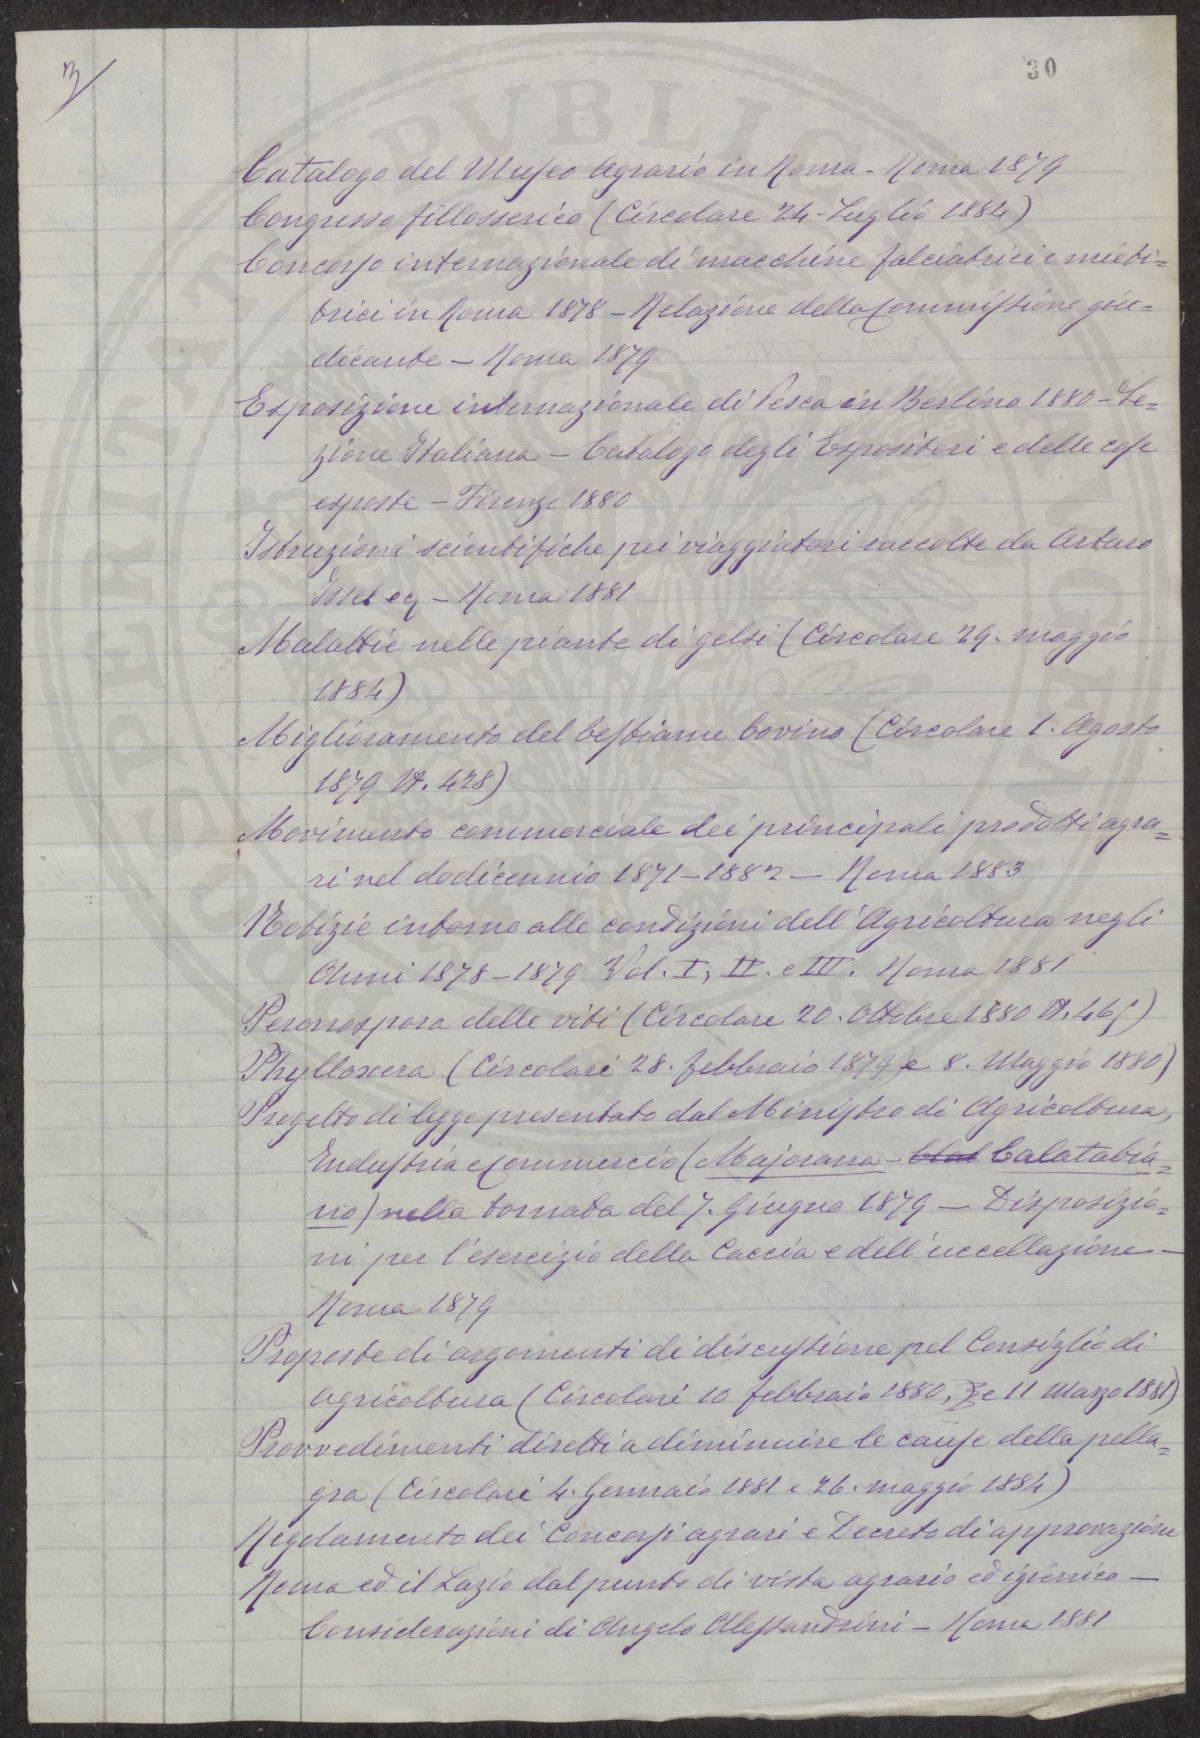 3/
30
Catalogo del Museo Agrario in Roma - Roma 1879
Congresso fillosserico (Circolare 24 Luglio 1884)
Concorso internazionale di macchine falciatrici e mieti=
trici in Roma 1878 - Relazione della Commissione giu-
dicante - Roma 1879
Esposizione internazionale di Pesca in Berlino 1880 - Se=
zione Italiana - Catalogo degli Espositori e delle cose
esposte - Firenze 1880
Istruzioni scientifiche pei viaggiatori raccolte da Arturo
Issel - Roma 1881
Malattie nelle piante di gelsi (Circolare 29. maggio
1884)
Miglioramento del bestiame bovino (Circolare 1. Agosto
1879 N. 428)
Movimento commerciale dei principali prodotti agra=
ri nel dodicennio 1871-1882 - Roma 1883
Notizie intorno alle condizioni dell'Agricoltura negli
Anni 1878-1879 Vol. I, II. e III. Roma 1881
Peronospora delle viti (Circolare 20. Ottobre 1880 N. 465)
Phylloxera (Circolari 28. febbraio 1879 e 8. Maggio 1880)
Progetto di legge presentato dal Ministro di Agricoltura,
Industria e Commercio (Majorana - Calatabia=
no) nella tornata del 7. Giugno 1879 - Disposizio=
ni per l'esercizio della Caccia e dell'uccellazione -
Roma 1879
Proposte di argomenti di discussione pel Consiglio di
agricoltura (Circolari 10 febbraio 1880, e 11 Marzo 1881)
Provvedimenti diretti a diminuire le cause della pella=
gra (Circolari 4. Gennaio 1881 e 26. maggio 1884)
Regolamento dei Concorsi agrari e Decreto di approvazione
Roma ed il Lazio dal punto di vista agrario ed igienico -
Considerazioni di Angelo Alessandrini - Roma 1881